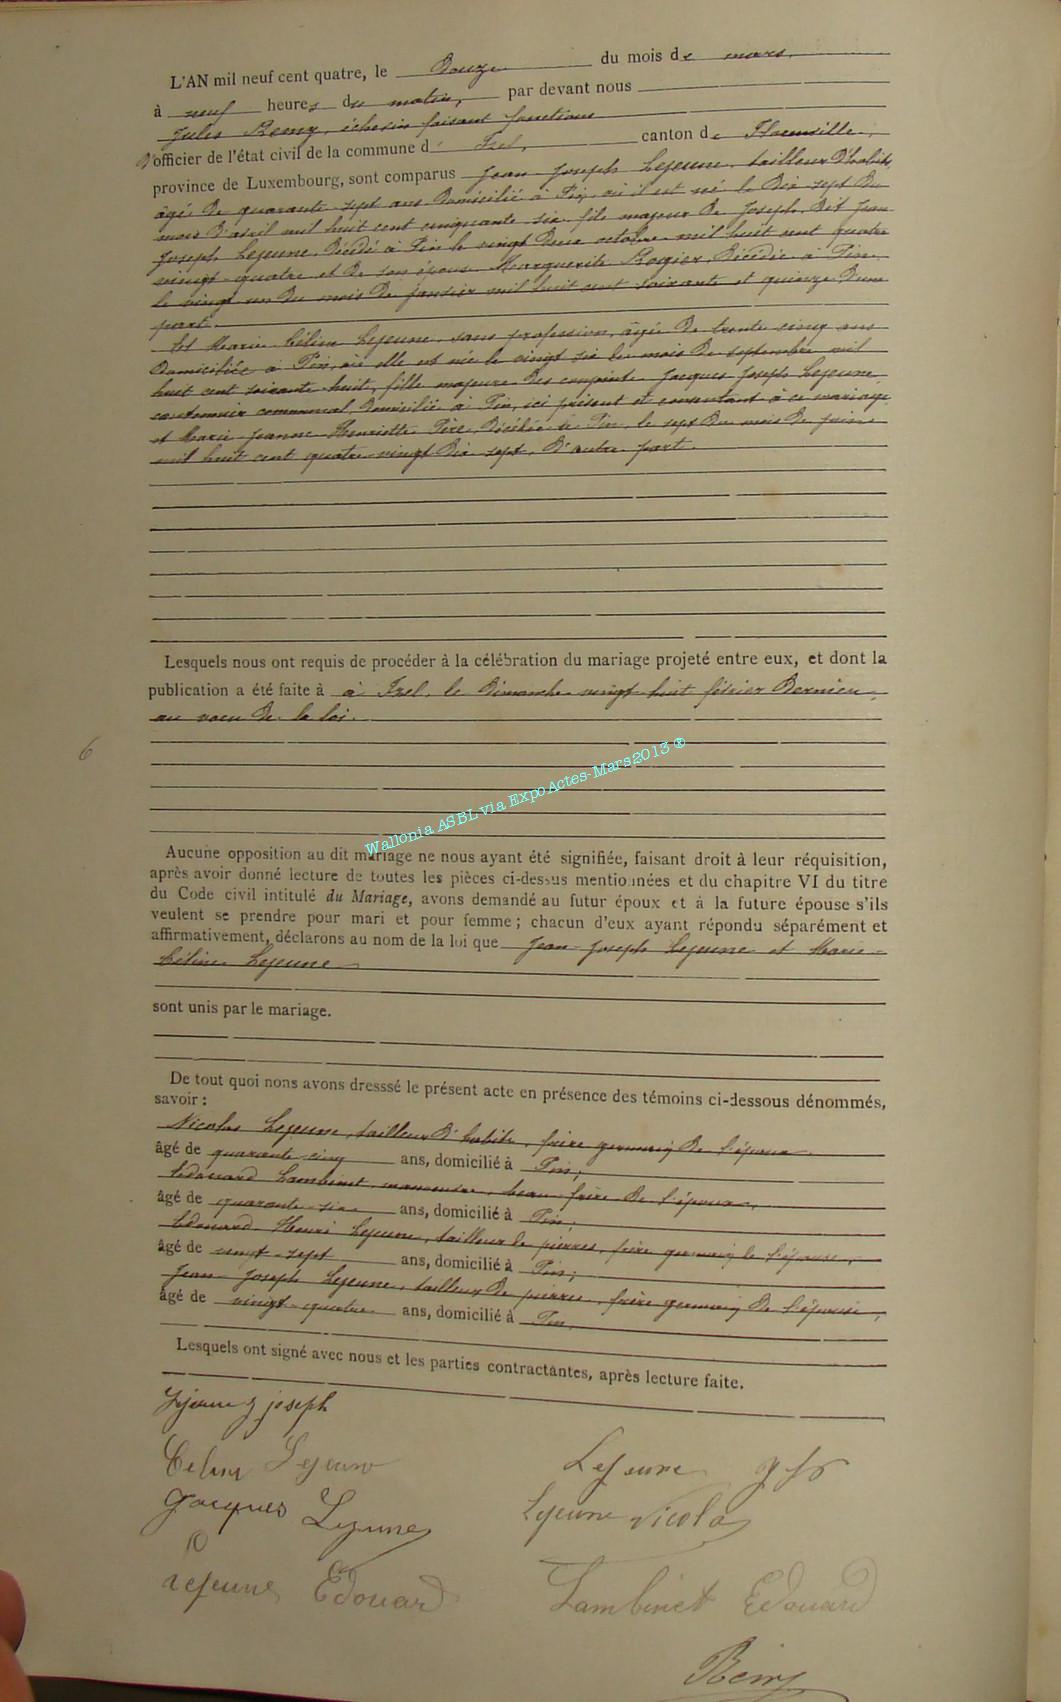 L'AN mil neuf cent quatre, le Douze du mois de mars,
à neuf heures du matin, par devant nous
Jules Remy, échevin faisant fonctions
d'officier de l'état civil de la commune d' Izel, canton de Florenville,
province de Luxembourg, sont comparus Jean Joseph Lejeune, tailleur d'habits,
âgé de quarante sept ans domicilié à Pin, où il est né le dix sept du
mois d'avril mil huit cent cinquante six fils majeur de Joseph, dit Jean
Joseph Lejeune, décédé à Pin le vingt deux octobre mil huit cent quatre
vingt-quatre et de son épouse Marguerite Rogier, décédée à Pin,
le vingt un du mois de janvier mil huit cent soixante et quinze d'une
part.
Et Marie Céline Lejeune, sans profession, âgée de trente cinq ans
domiciliée à Pin, où elle est née le vingt six du mois de septembre mil
huit cent soixante huit, fille majeure des conjoints Jacques Joseph Lejeune,
cantonnier communal, domicilié à Pin, ici présent et consentant à ce mariage
et Marie Jeanne Henriette decédée à Pin, le sept du mois de juin
mil huit cent quatre-vingt dix sept, d'autre part.
Lesquels nous ont requis de procéder à la célébration du mariage projeté entre eux, et dont la
publication a été faite à à Izel, le dimanche vingt huit février dernier,
au voeu de la loi.
6
Wallonia ASBL via ExpoActes-Mars2013 ®
Aucune opposition au dit mariage ne nous ayant été signifiée, faisant droit à leur réquisition,
après avoir donné lecture de toutes les pièces ci-dessus mentionnées et du chapitre VI du titre
du Code civil intitulé du Mariage, avons demandé au futur époux et à la future épouse s'ils
veulent se prendre pour mari et pour femme ; chacun d'eux ayant répondu séparément et
affirmativement, déclarons au nom de la loi que Jean-Joseph Lejeune et Marie-
Céline Lejeune
sont unis par le mariage.
De tout quoi nons avons dresssé le présent acte en présence des témoins ci-dessous dénommés,
savoir :
Nicolas Lejeune, tailleur d'habits, frère germain de l'époux
âgé de quarante-cinq ans, domicilié à Pin;
Edouard Lambinet, manoeuvre, beau-frère de l'époux,
âgé de quarante-six ans, domicilié à Pin;
Edouard Henri Lejeune, tailleur de pierres, frère germain de l'épouse,
âgé de vingt-sept ans, domicilié à Pin;
Jean-Joseph Lejeune, tailleur de pierres, frère germain de l'épouse,
âgé de vingt-quatre ans, domicilié à Pin.
Lesquels ont signé avec nous et les parties contractantes, après lecture faite.
Lejeune J joseph
Celine Lejeune
Lejeune
Jacques Lejeune
Lejeune Nicolas
Lejeune Edouard
Lambinet Edouard
Remy